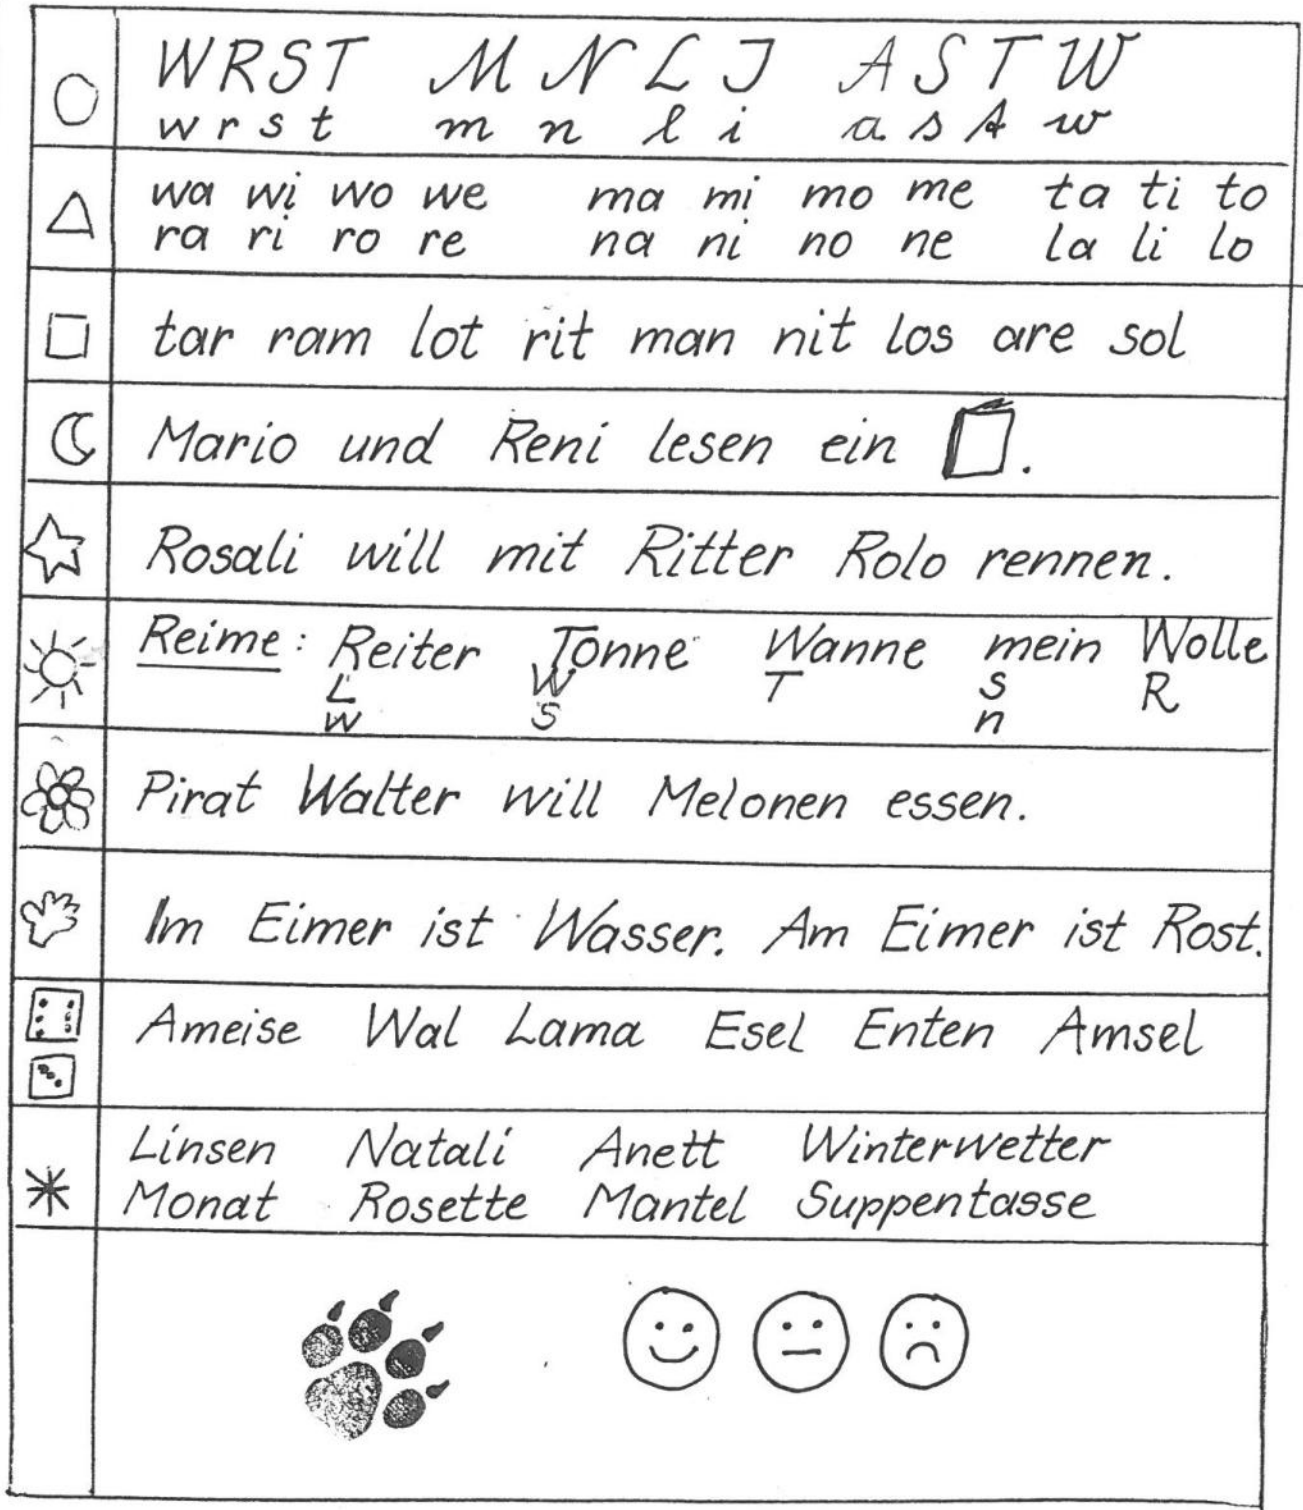 W R S T M N L J A S T W
w r s t m n l i a s t w
wa wi wo we ma mi mo me ta ti to
ra ri ro re na ni no ne la li lo
tar ram lot rit man nit los are sol
Mario und Reni lesen ein .
Rosali will mit Ritter Rolo rennen.
Reime: Reiter Tonne Wanne mein Wolle
L W T s R
w S n
Pirat Walter will Melonen essen.
Im Eimer ist Wasser. Am Eimer ist Rost.
Ameise Wal Lama Esel Enten Amsel
Linsen Natali Anett Winterwetter
Monat Rosette Mantel Suppentasse